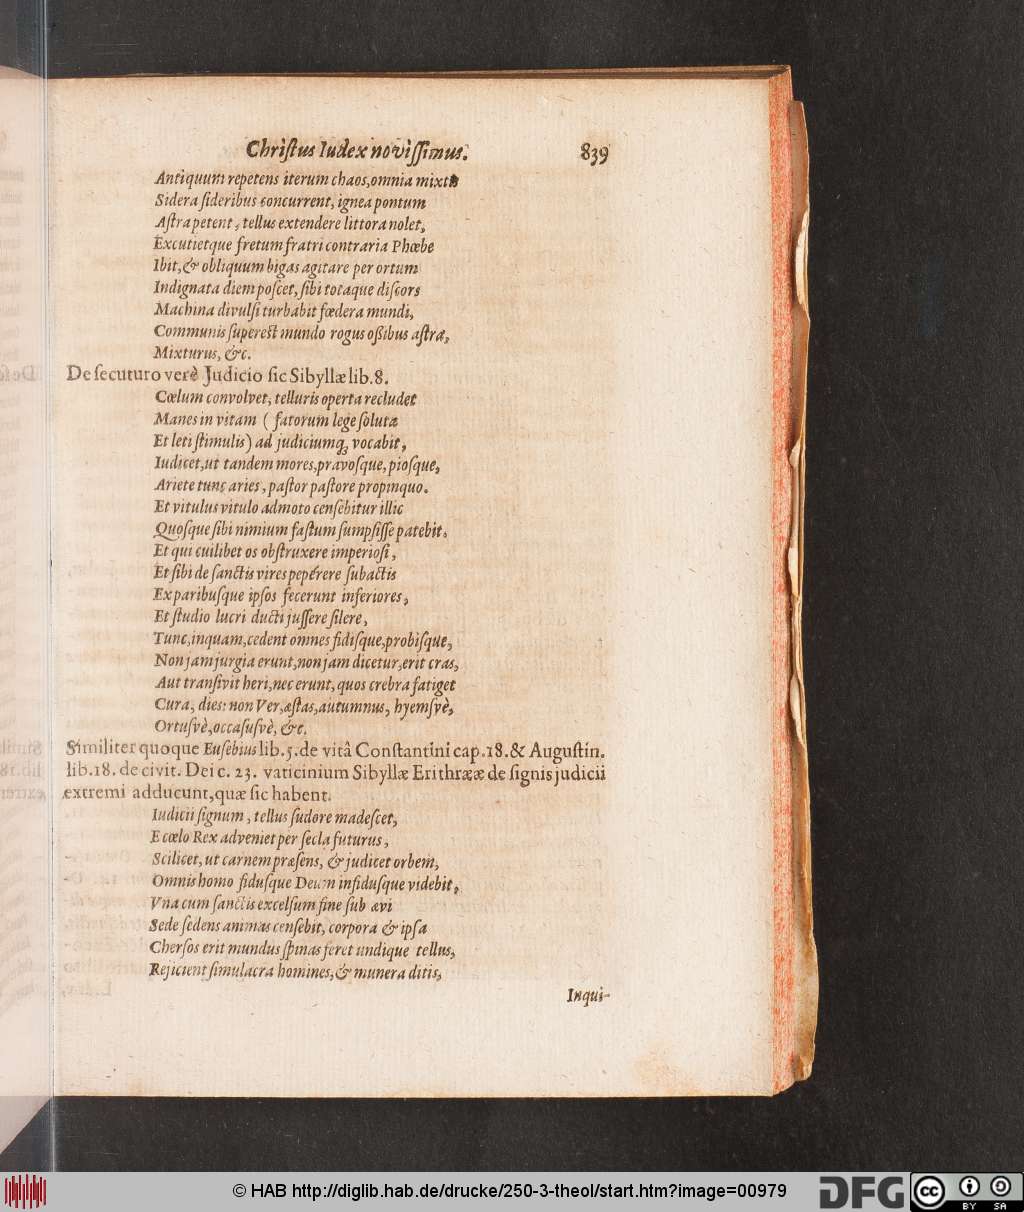 Chriſtus Iudex noviſſimus. 839
Antiquum repetens iterum chaos, omnia mixtis
Sidera ſideribus concurrent, ignea pontum
Aſtra petent, tellus extendere littora nolet,
Excutietque fretum fratri contraria Phœbe
Ibit, & obliquum bigas agitare per ortum
Indignata diem poſcet, ſibi totaque diſcors
Machina divulſi turbabit fœdera mundi,
Communis ſupereſt mundo rogus oßibus aſtra,
Mixturus, &c.
De ſecuturo verè Judicio ſic Sibyllæ lib.8.
Cœlum convolvet, telluris operta recludet
Manes in vitam ( fatorum lege ſolutæ
Et leti ſtimulis) ad judiciumq́; vocabit,
Iudicet, ut tandem mores, pravoſque, pioſque,
Ariete tunc aries, paſtor paſtore propinquo.
Et vitulus vitulo admoto cenſebitur illic
Quoſque ſibi nimium faſtum ſumpſiſſe patebit.
Et qui cuilibet os obſtruxere imperioſi,
Et ſibi de ſanctis vires pepérere ſubactis
Ex paribuſque ipſos fecerunt inferiores,
Et ſtudio lucri ducti juſſere ſilere,
Tunc, inquam, cedent omnes fidiſque, probiſque,
Non jam jurgia erunt, non jam dicetur, erit cras,
Aut tranſivit heri, nec erunt, quos crebra fatiget
Cura, dies: non Ver, æſtas, autumnus, hyemſvè,
Ortuſvè, occaſuſvè, &c.
Similiter quoque Euſebius lib.5. de vitâ Conſtantini cap.18. & Auguſtin.
lib.18. de civit. Dei c. 23. vaticinium Sibyllæ Erithrææ de ſignis judicii
extremi adducunt, quæ ſic habent.
Iudicii ſignum, tellus ſudore madeſcet,
E cœlo Rex adveniet per ſecla futurus,
Scilicet, ut carnem præſens, & judicet orbem,
Omnis homo fiduſque Deum infiduſque videbit,
Vna cum ſanctis excelſum fine ſub ævi
Sede ſedens animas cenſebit, corpora & ipſa
Cherſos erit mundus ſpinas feret undique tellus,
Rejicient ſimulacra homines, & munera ditis,
Inqui-
© HAB http://diglib.hab.de/drucke/250-3-theol/start.htm?image=00979
DFG
cc BY SA